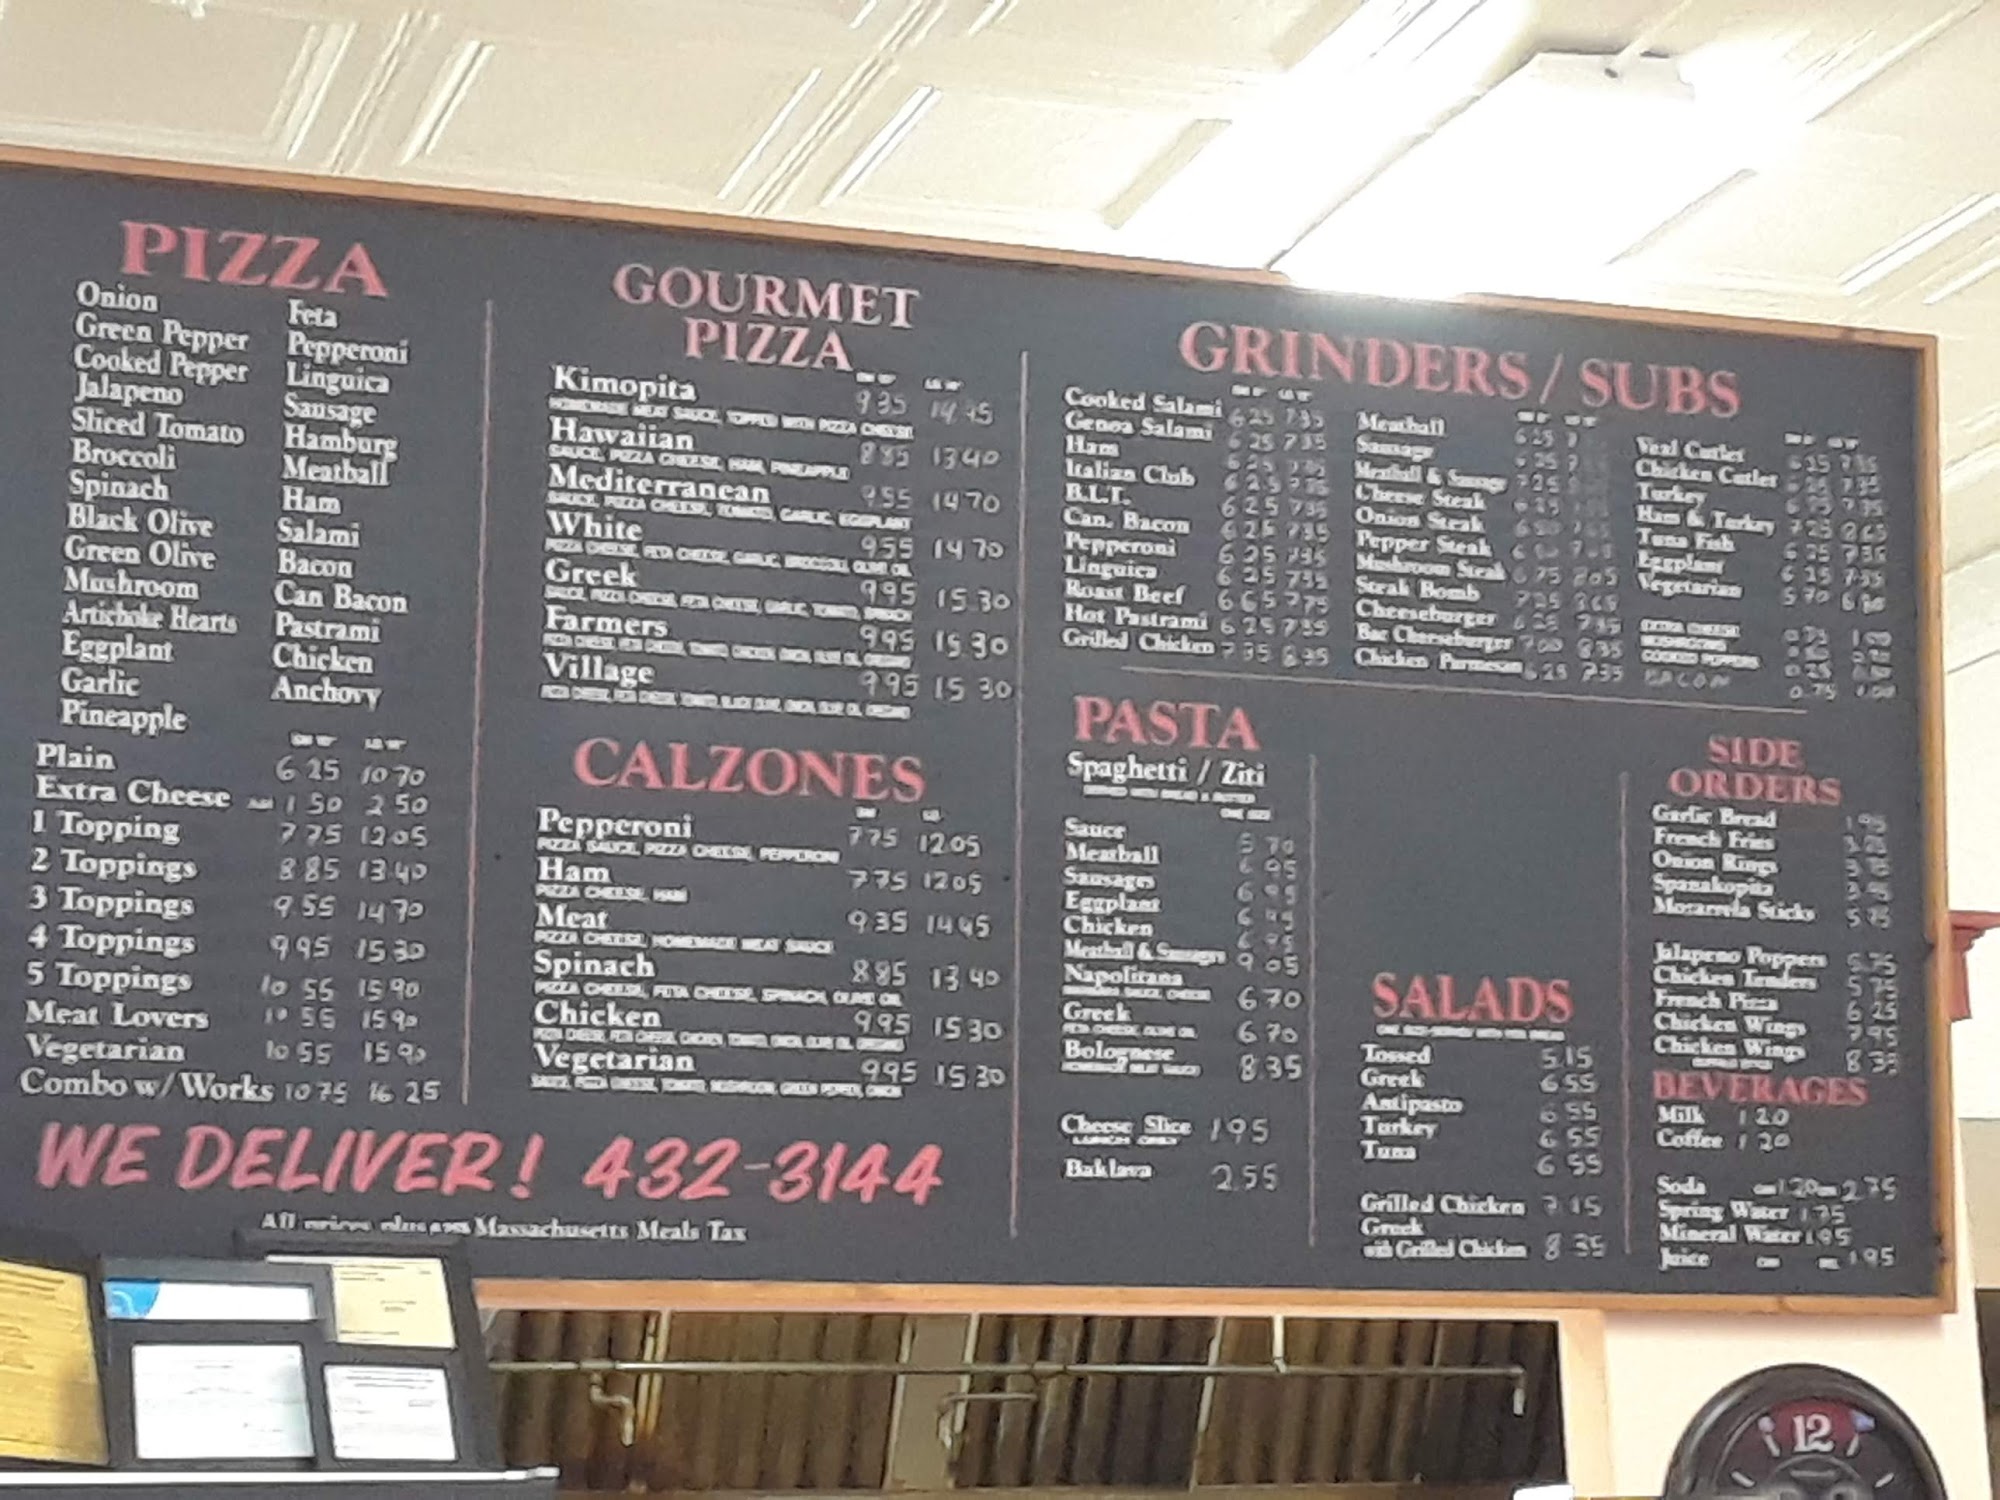 PIZZA
Onion
Green Pepper
Cooked Pepper
Jalapeno
Sliced Tomato
Broccoli
Spinach
Black Olive
Green Olive
Mushroom
Artichoke Hearts
Eggplant
Garlic
Pineapple
Feta
Pepperoni
Linguica
Sausage
Hamburg
Meatball
Ham
Salami
Bacon
Can Bacon
Pastrami
Chicken
Anchovy
SM 10" LG 16"
Plain 6 25 10 70
Extra Cheese 1 50 2 50
1 Topping 7 75 12 05
2 Toppings 8 85 13 40
3 Toppings 9 55 14 70
4 Toppings 9 95 15 30
5 Toppings 10 55 15 90
Meat Lovers 10 55 15 90
Vegetarian 10 55 15 90
Combo w/ Works 10 75 16 25
WE DELIVER! 432-3144
All prices plus Massachusetts Meals Tax
GOURMET
PIZZA
Kimopita 9 35 14 45
HOMEMADE MEAT SAUCE, TOPPED WITH PIZZA CHEESE
Hawaiian 8 85 13 40
SAUCE, PIZZA CHEESE, HAM, PINEAPPLE
Mediterranean 9 55 14 70
SAUCE, PIZZA CHEESE, TOMATO, GARLIC, EGGPLANT
White 9 55 14 70
PIZZA CHEESE, FETA CHEESE, GARLIC, BROCCOLI, OLIVE OIL
Greek 9 95 15 30
SAUCE, PIZZA CHEESE, FETA CHEESE, GARLIC, TOMATO, SPINACH
Farmers 9 95 15 30
PIZZA CHEESE, FETA CHEESE, TOMATO, CHICKEN, ONION, OLIVE OIL, OREGANO
Village 9 95 15 30
PIZZA CHEESE, FETA CHEESE, TOMATO, BLACK OLIVE, ONION, OLIVE OIL, OREGANO
CALZONES
SM LG
Pepperoni 7 75 12 05
PIZZA SAUCE, PIZZA CHEESE, PEPPERONI
Ham 7 75 12 05
PIZZA CHEESE, HAM
Meat 9 35 14 45
PIZZA CHEESE, HOMEMADE MEAT SAUCE
Spinach 8 85 13 40
PIZZA CHEESE, FETA CHEESE, SPINACH, OLIVE OIL
Chicken 9 95 15 30
PIZZA CHEESE, FETA CHEESE, CHICKEN, TOMATO, ONION, OLIVE OIL, OREGANO
Vegetarian 9 95 15 30
SAUCE, PIZZA CHEESE, TOMATO, MUSHROOM, GREEN PEPPER, ONION
GRINDERS / SUBS
Cooked Salami 6 25 7 35
Genoa Salami 6 25 7 35
Ham 6 25 7 35
Italian Club 6 25 7 35
B.L.T. 6 25 7 35
Can. Bacon 6 25 7 35
Pepperoni 6 25 7 35
Linguica 6 25 7 35
Roast Beef 6 65 7 75
Hot Pastrami 6 25 7 35
Grilled Chicken 7 35 8 35
Meatball 6 25
Sausage 6 25
Meatball & Sausage 7 25
Cheese Steak 6 25
Onion Steak
Pepper Steak
Mushroom Steak 6 75 8 05
Steak Bomb 7 25 8 65
Cheeseburger 6 25 7 35
Bac Cheeseburger 7 00 8 35
Chicken Parmesan 6 25 7 35
Veal Cutlet 6 25 7 35
Chicken Cutlet 6 25 7 35
Turkey 6 25 7 35
Ham & Turkey 7 25 8 65
Tuna Fish 6 25 7 35
Eggplant 6 25 7 35
Vegetarian 5 70 6 80
EXTRA CHEESE 0 75 1 00
MUSHROOMS
COOKED PEPPERS
BACON 0 75 1 00
PASTA
Spaghetti / Ziti
SERVED WITH BREAD & BUTTER
ONE SIZE
Sauce 5 70
Meatball 6 95
Sausages 6 95
Eggplant 6 95
Chicken 6 95
Meatball & Sausages 9 05
Napolitana 6 70
Greek 6 70
FETA CHEESE, OLIVE OIL
Bolognese 8.35
HOMEMADE MEAT SAUCE
Cheese Slice 1 95
LUNCH ONLY
Baklava 2.55
SALADS
Tossed 5.15
Greek 6 55
Antipasto 6 55
Turkey 6 55
Tuna 6 55
Grilled Chicken 7 15
Greek
with Grilled Chicken 8 35
SIDE
ORDERS
Garlic Bread 1 95
French Fries 3.25
Onion Rings
Spanakopita
Mozarrela Sticks 5 75
Jalapeno Poppers 5.75
Chicken Tenders 5 75
French Pizza 6 25
Chicken Wings 7 95
Chicken Wings 8 35
BEVERAGES
Milk 1 20
Coffee 1 20
Soda 1 20 2 75
Spring Water 1 75
Mineral Water 1 95
Juice 1 95
12